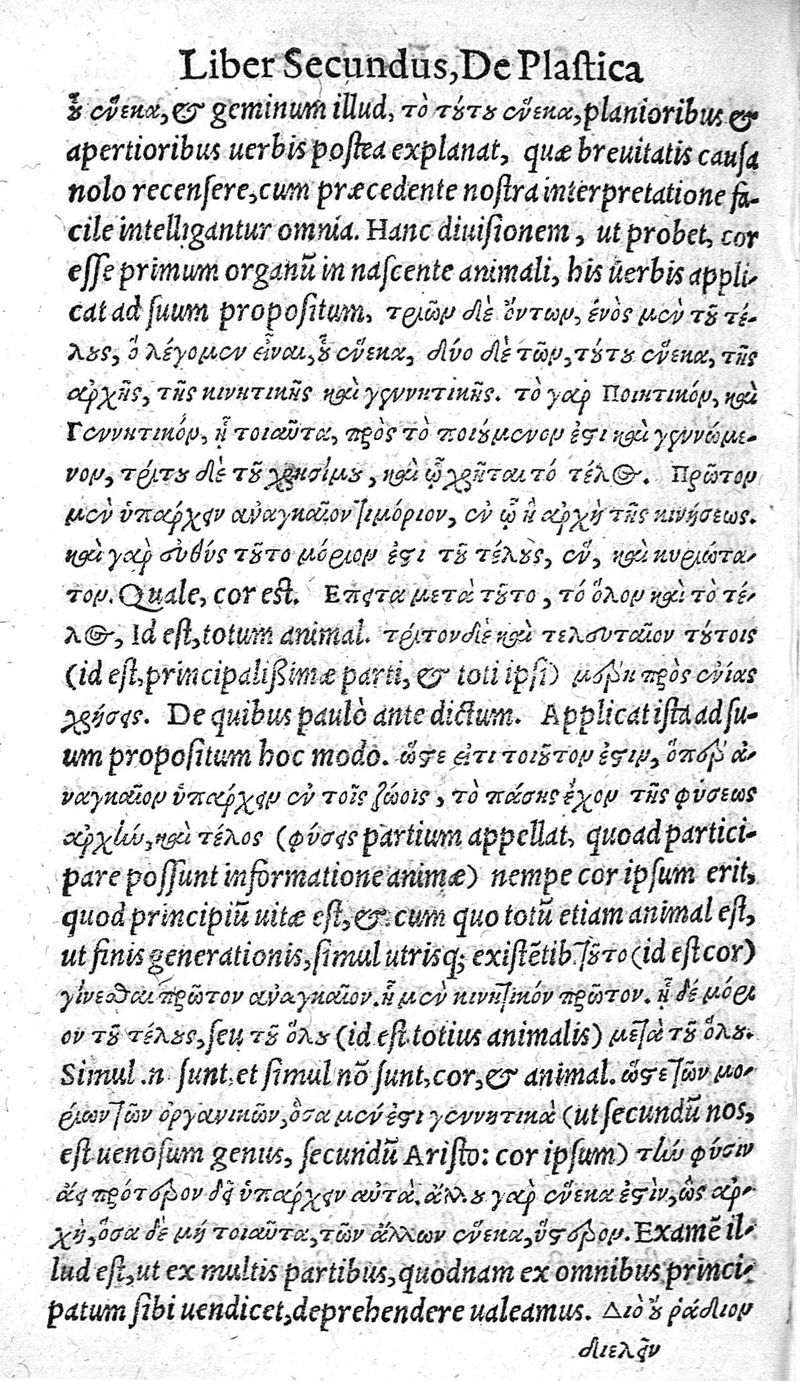 Liber Secundus, De Plastica
οὗ ἕνεκα, & geminum illud, τὸ τούτου ἕνεκα, planioribus &
apertioribus uerbis postea explanat, quæ breuitatis causa
nolo recensere, cum præcedente nostra interpretatione fa-
cile intelligantur omnia. Hanc diuisionem, ut probet, cor
esse primum organū in nascente animali, his uerbis appli-
cat ad suum propositum, τριῶν δὲ ὄντων, ἑνὸς μὲν τοῦ τέ-
λους, ὃ λέγομεν εἶναι, οὗ ἕνεκα, δύο δὲ τῶν, τούτου ἕνεκα, τῆς
ἀρχῆς, τῆς κινητικῆς καὶ γεννητικῆς. τὸ γὰρ Ποιητικόν, καὶ
Γεννητικόν, ᾗ τοιαῦτα, πρὸς τὸ ποιούμενον ἐστι καὶ γεννώμε-
νον, τρίτου δὲ τοῦ χρησίμου, καὶ ᾧ χρῆται τό τέλος. Πρῶτον
μὲν ὑπάρχειν ἀναγκαῖον τι μόριον, ἐν ᾧ ἡ ἀρχὴ τῆς κινήσεως.
καὶ γὰρ εὐθύς τοῦτο μόριον ἐστι τοῦ τέλους, ἕν, καὶ κυριώτα-
τον. Quale, cor est. Επειτα μετὰ τοῦτο, τό ὅλον καὶ τὸ τέ-
λος, Id est, totum animal. τρίτον δὲ καὶ τελευταῖον τούτοις
(id est, principalissimæ parti, & toti ipsi) μέρη πρὸς ἐνίας
χρήσεις. De quibus paulò ante dictum. Applicat ista ad su-
um propositum hoc modo. ὥστε εἴ τι τοιοῦτον ἐστιν, ὅπερ ἀ-
ναγκαῖον ὑπάρχειν ἐν τοῖς ζώοις, τὸ πάσης ἔχον τῆς φύσεως
ἀρχὴν, καὶ τέλος (φύσεις partium appellat, quoad partici-
pare possunt informatione animæ) nempe cor ipsum erit,
quod principiū uitæ est, & cum quo totū etiam animal est,
ut finis generationis, simul utrisq; existētib. τοῦτο (id est cor)
γίνεσθαι πρῶτον ἀναγκαῖον. ᾗ μὲν κινητικόν πρῶτον. ᾗ δέ μόρι
ον τοῦ τέλους, seu τοῦ ὅλου (id est totius animalis) μετὰ τοῦ ὅλου.
Simul .n. sunt, et simul nō sunt, cor, & animal. ὥστε τῶν μο-
ρίων τῶν ὀργανικῶν, ὅσα μέν ἐστι γεννητικὰ (ut secundū nos,
est uenosum genus, secundū Aristo: cor ipsum) τὴν φύσιν
ἀεὶ πρότερον δεῖ ὑπάρχειν αὐτὰ. ἄλλου γὰρ ἕνεκα ἐστὶν, ὡς ἀρ-
χή, ὅσα δὲ μή τοιαῦτα, τῶν ἄλλων ἕνεκα, ὕστερον. Examē il-
lud est, ut ex multis partibus, quodnam ex omnibus princi-
patum sibi uendicet, deprehendere ualeamus. Διὸ οὐ ῥάδιον
διελεῖν